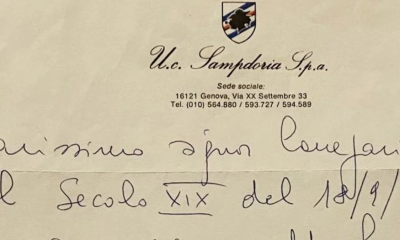 U.c. Sampdoria S.p.a.
Sede sociale:
16121 Genova, Via XX Settembre 33
Tel. (010) 564.880 / 593.727 / 594.589
arissimo signor
l Secolo XIX del 18/9/